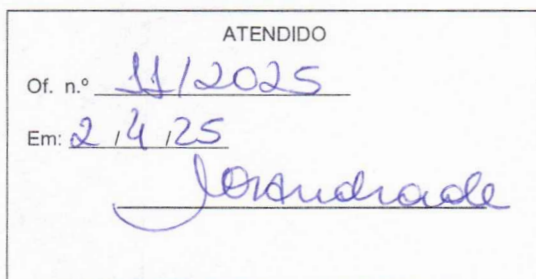 ATENDIDO
Of. n.º 11/2025
Em: 2/4/25